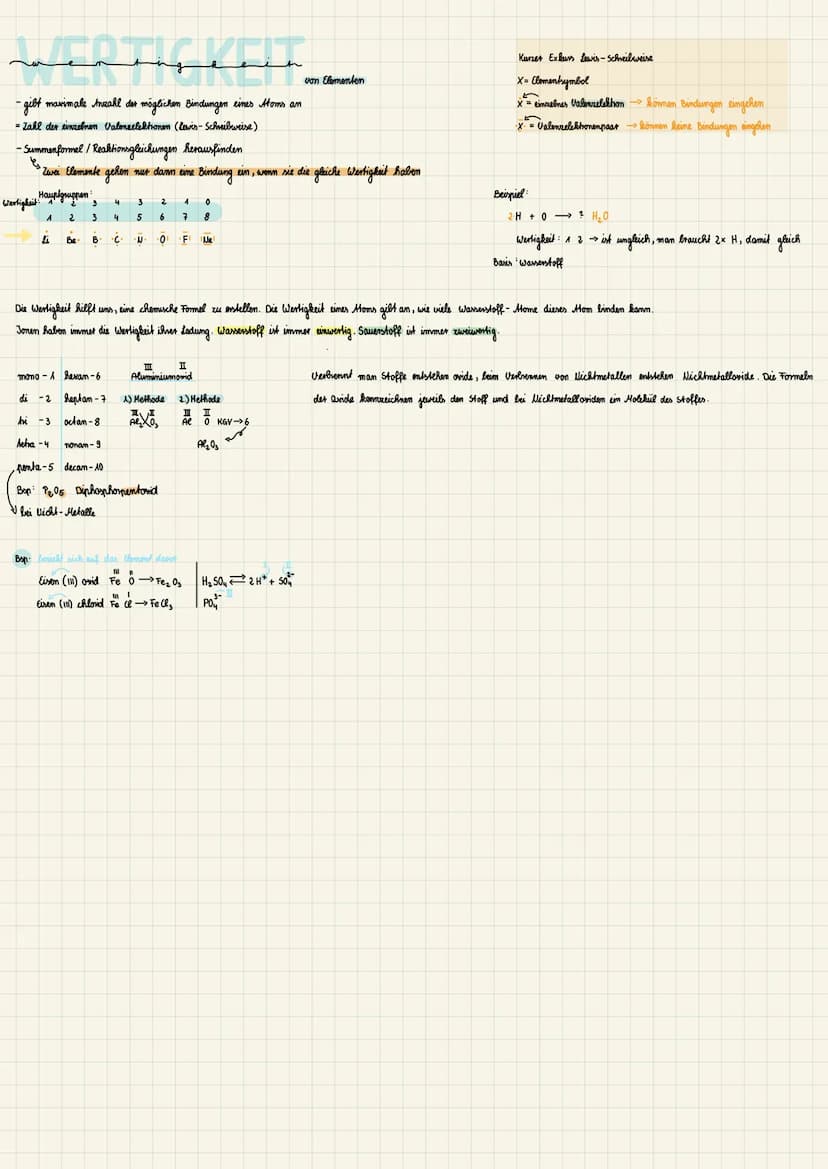 WERTIGKEIT
wertigkeit
von Elementen
- gibt maximale Anzahl der möglichen Bindungen eines Atoms an
= Zahl der einzelnen Valenzelektronen (Lewis-Schreibweise)
- Summenformel / Reaktionsgleichungen herausfinden
Zwei Elemente gehen nur dann eine Bindung ein, wenn sie die gleiche Wertigkeit haben
Kurzer Exkurs Lewis-Schreibweise
X = Elementsymbol
Ẋ = einzelnes Valenzelektron → können Bindungen eingehen
X = Valenzelektronenpaar → können keine Bindungen eingehen
Hauptgruppen:
Wertigkeit: 1 2 3 4 3 2 1 0
1 2 3 4 5 6 7 8
Li Be B C N O F Ne
Beispiel:
2H + O → ? H₂O
Wertigkeit: 1 2 → ist ungleich, man braucht 2x H, damit gleich
Basis: Wasserstoff
Die Wertigkeit hilft uns, eine chemische Formel zu erstellen. Die Wertigkeit eines Atoms gibt an, wie viele Wasserstoff-Atome dieses Atom binden kann.
Ionen haben immer die Wertigkeit ihrer Ladung. Wasserstoff ist immer einwertig. Sauerstoff ist immer zweiwertig.
mono - 1 hexan - 6
di - 2 heptan - 7
tri - 3 octan - 8
tetra - 4 nonan - 9
penta - 5 decan - 10
Bsp: P₂O₅ Diphosphorpentoxid
bei Nicht-Metalle
III II
Aluminiumoxid
1) Methode 2) Methode
III II III II
Al₂O₃ Al O KGV → 6
Al₂O₃
Verbrennt man Stoffe entstehen oxide, beim Verbrennen von Nichtmetallen entstehen Nichtmetalloxide. Die Formeln
der Oxide kennzeichnen jeweils den Stoff und bei Nichtmetalloxiden ein Molekül des Stoffes.
Bsp: bezieht sich auf das Element davor
III II
Eisen (III) oxid Fe O → Fe₂O₃
III I
Eisen (III) chlorid Fe Cl → FeCl₃
I II
H₂SO₄ ⇄ 2H⁺ + SO₄²⁻
III
PO₄³⁻